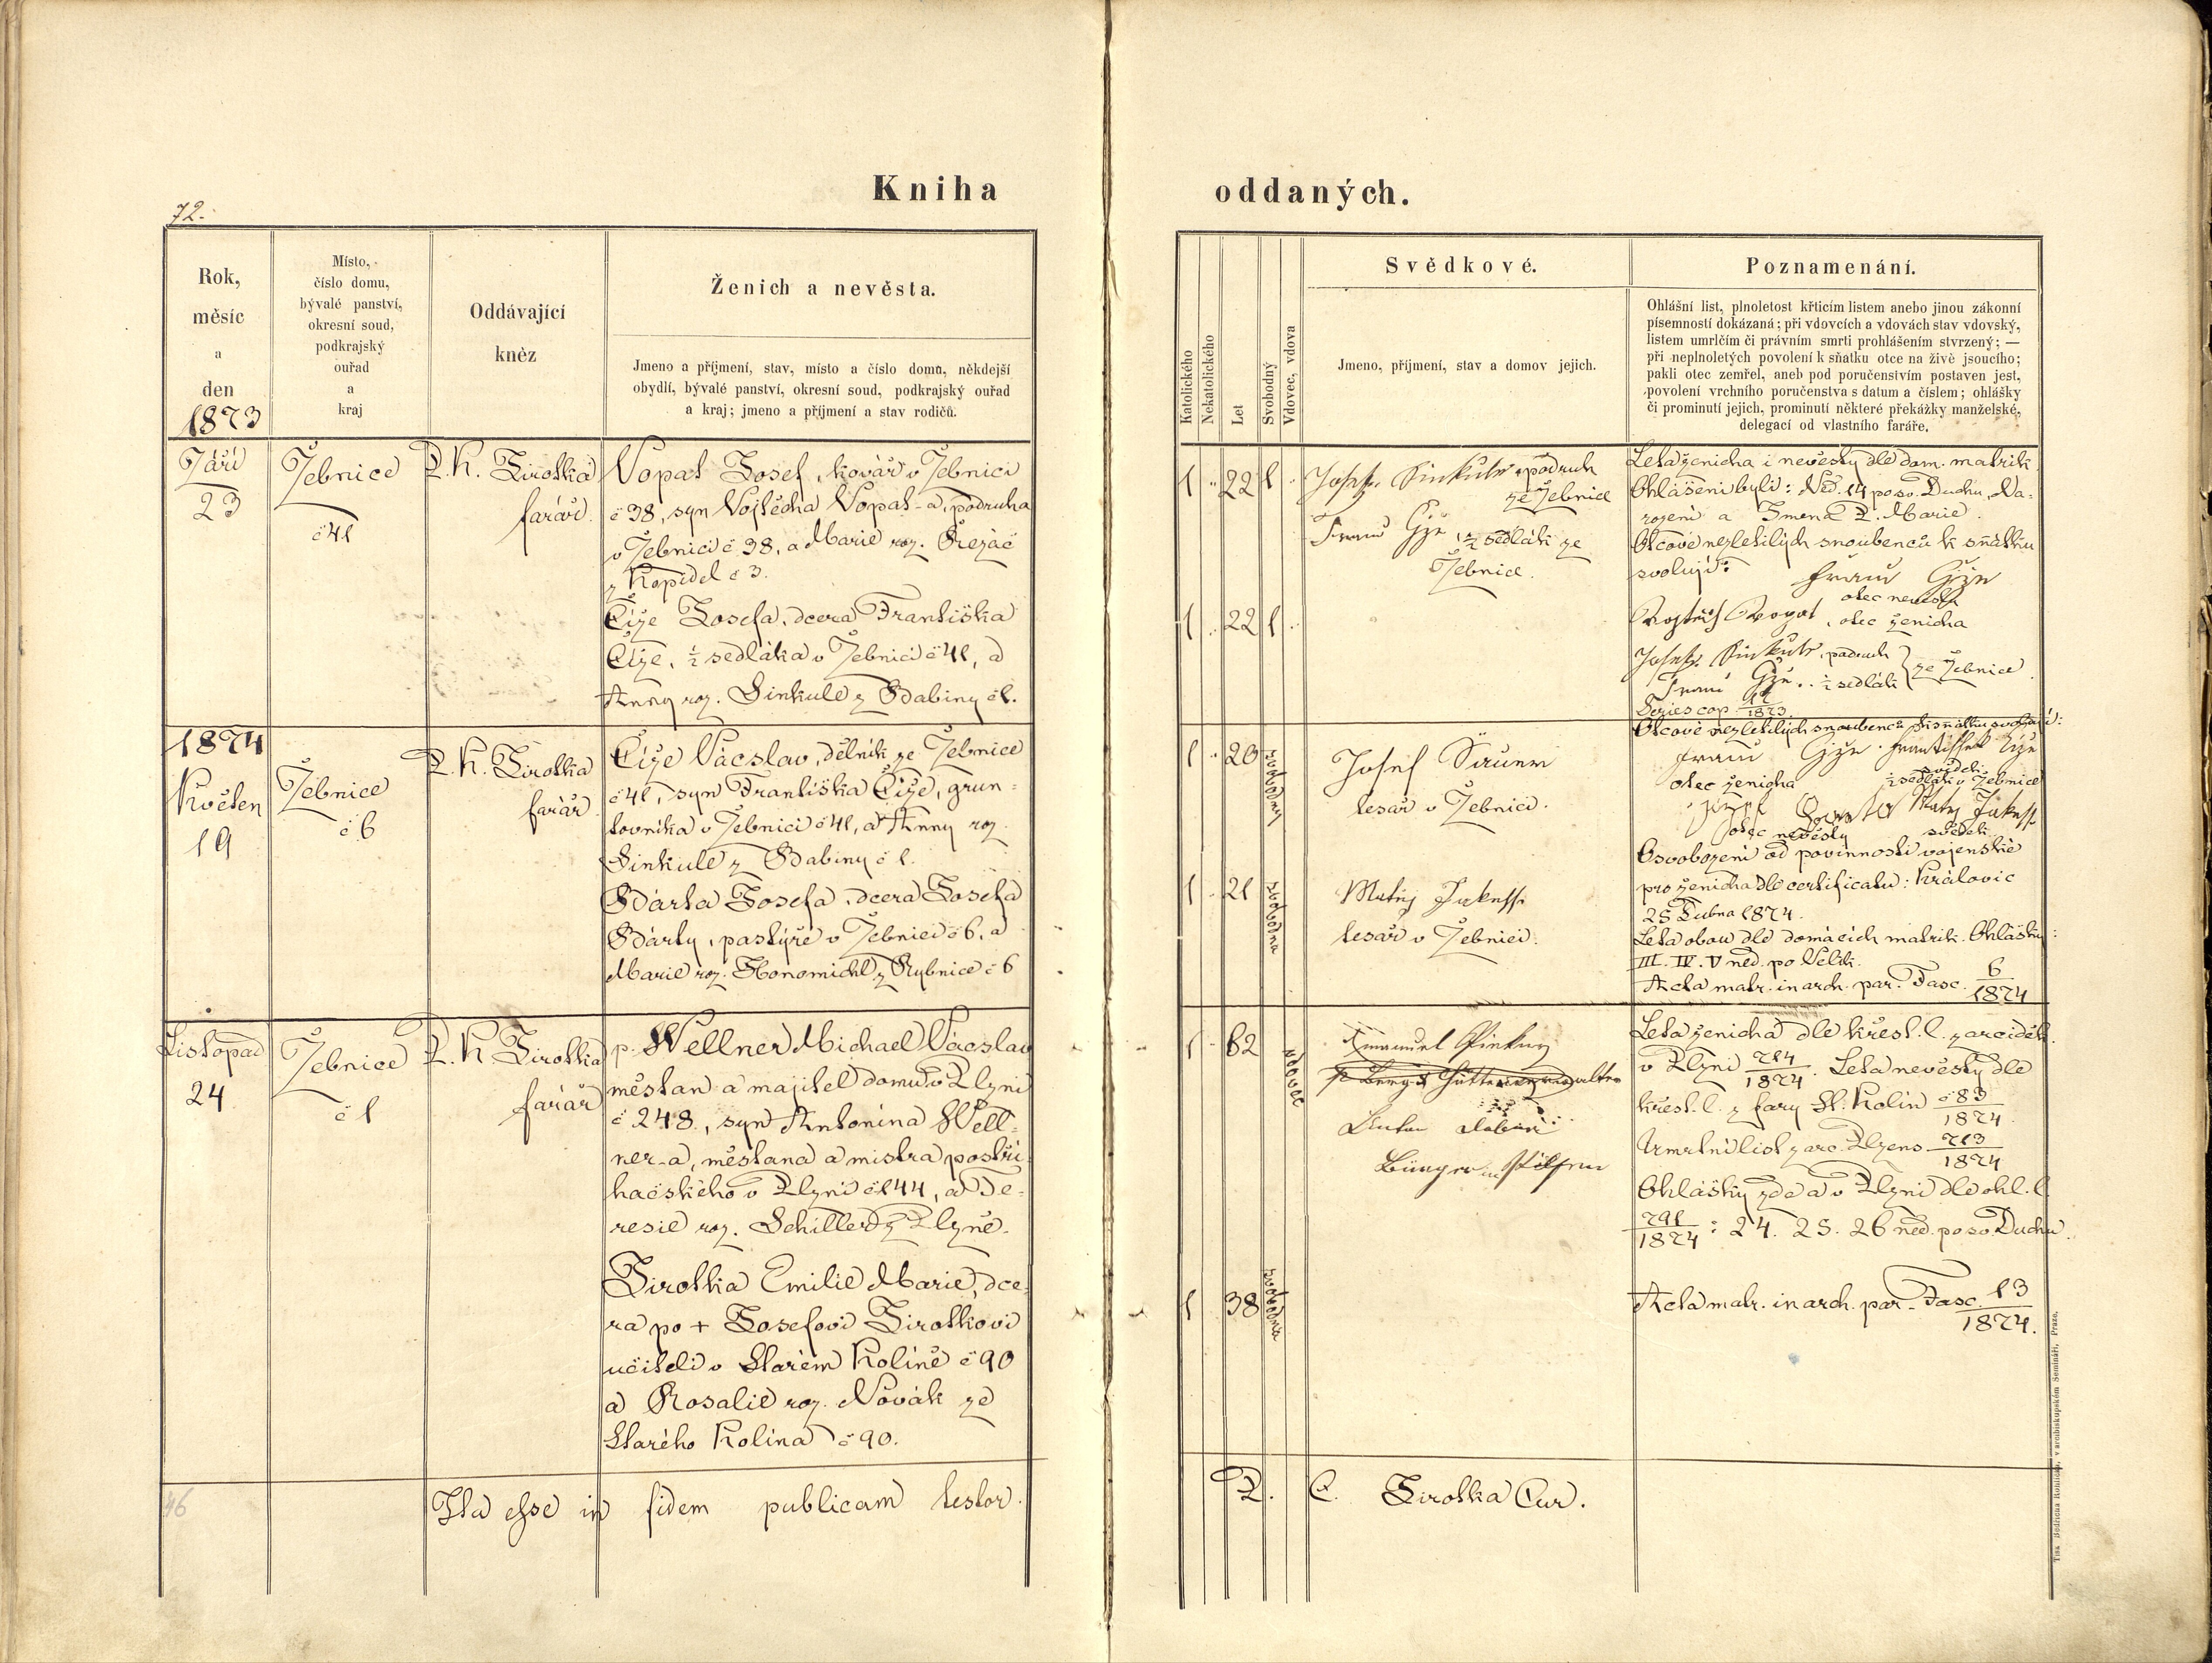 Kniha
oddaných.
72.
Rok,
měsíc
a
den
1873
Místo,
číslo domu,
bývalé panství,
okresní soud,
podkrajský
ouřad
a
kraj
Oddávající
kněz
Ženich a nevěsta.
Jmeno a příjmení, stav, místo a číslo domu, někdejší
obydlí, bývalé panství, okresní soud, podkrajský ouřad
a kraj; jmeno a příjmení a stav rodičů.
Katolického
Nekatolického
Let
Svobodný
Vdovec, vdova
Svědkové.
Jmeno, příjmení, stav a domov jejich.
Poznamenání.
Ohlášní list, plnoletost křticím listem anebo jinou zákonní
písemností dokázaná; při vdovcích a vdovách stav vdovský,
listem umrlčím či právním smrti prohlášením stvrzený; —
při neplnoletých povolení k sňatku otce na živě jsoucího;
pakli otec zemřel, aneb pod poručenstvím postaven jest,
povolení vrchního poručenstva s datum a číslem; ohlášky
či prominutí jejich, prominutí některé překážky manželské,
delegací od vlastního faráře.
Září
23
Žebnice
č 41
P. K. Sirotka
farář.
Vopat Josef, kovář v Žebnici
č 38, syn Vojtěcha Vopat-a, podruha
v Žebnici č 38, a Marie roz. Řezáč
z Kopidel č 3.
Číže Josefa, dcera Františka
Číže, ½ sedláka v Žebnici č 41, a
Anny roz. Sinkule z Babiny č 1.
1 22 1
1 22 1
Josef Sinkule, podruh
ze Žebnice
Franc Čiže, ½ sedlák ze
Žebnice.
Leta ženicha i nevěsty dle dom. matrik
Ohlášeni byli: Ned. 14 po sv. Duchu, Na-
rození a Jména P. Marie.
Otcové nezletilých snoubenců k sňatku
svolují: Franc Čiže
otec nevěsty
Vojtěch Vopat, otec ženicha
Josef Sinkule, podruh
Franc Čiže, ½ sedlák } ze Žebnice
Series cop. /1873
1874
Květen
19
Žebnice
č 6
P. K. Sirotka
farář
Číže Václav, dělník ze Žebnice
č 41, syn Františka Číže, grun-
tovníka v Žebnici č 41, a Anny roz
Sinkule z Babiny č 1.
Bárta Josefa, dcera Josefa
Bárty, pastýře v Žebnici č 6, a
Marie roz. Honomichl z Rybnice č 6
1 20 svobodný
1 21 svobodna
Josef Sauer
tesař v Žebnici.
Matěj Jakesch
tesař v Žebnici.
Otcové nezletilých snoubenců k sňatku svolují:
Franc Čiže František Číže
otec ženicha svědek
½ sedlák v Žebnici
Josef Barta Matěj Jakesch
otec nevěsty svědek
Osvobození od povinnosti vojenské
pro ženicha dle certificatu: Královic
25 Dubna 1874.
Leta obou dle domácích matrik. Ohlášky:
III. IV. V ned. po Velik.
Acta matr. in arch. par. Fasc. 6/1874
Listopad
24
Žebnice
č 1
P. K. Sirotka
farář
p. Wellner Michael Václav
měšťan a majitel domu v Plzni
č 248, syn Antonína Well-
ner-a, měšťana a mistra postři-
hačského v Plzni č 144, a Te-
resie roz. Schiller z Plzně.
Sirotka Emilie Marie, dce-
ra po + Josefovi Sirotkovi
učiteli v Starém Kolíně č 90
a Rosalie roz. Novák ze
Starého Kolína č 90.
1 62 vdovec
1 38 svobodna
Emanuel
Anton
Bürger in Pilsen
Leta ženicha dle křest. l. z arciděk.
v Plzni 714/1874. Leta nevěsty dle
křest. l. z fary St. Kolín č 83/1874
Umrtní list z arc. Plzens. 713/1874
Ohlášky zde a v Plzni dle ohl. l.
791/1874: 24. 25. 26 ned. po sv. Duchu.
Acta matr. in arch. par. Fasc. 13/1874.
46
Ita esse in fidem publicam testor.
P. C. Sirotka Cur.
Tisk Bedřicha Rohlíčka, v arcibiskupském Semináři, Praze.